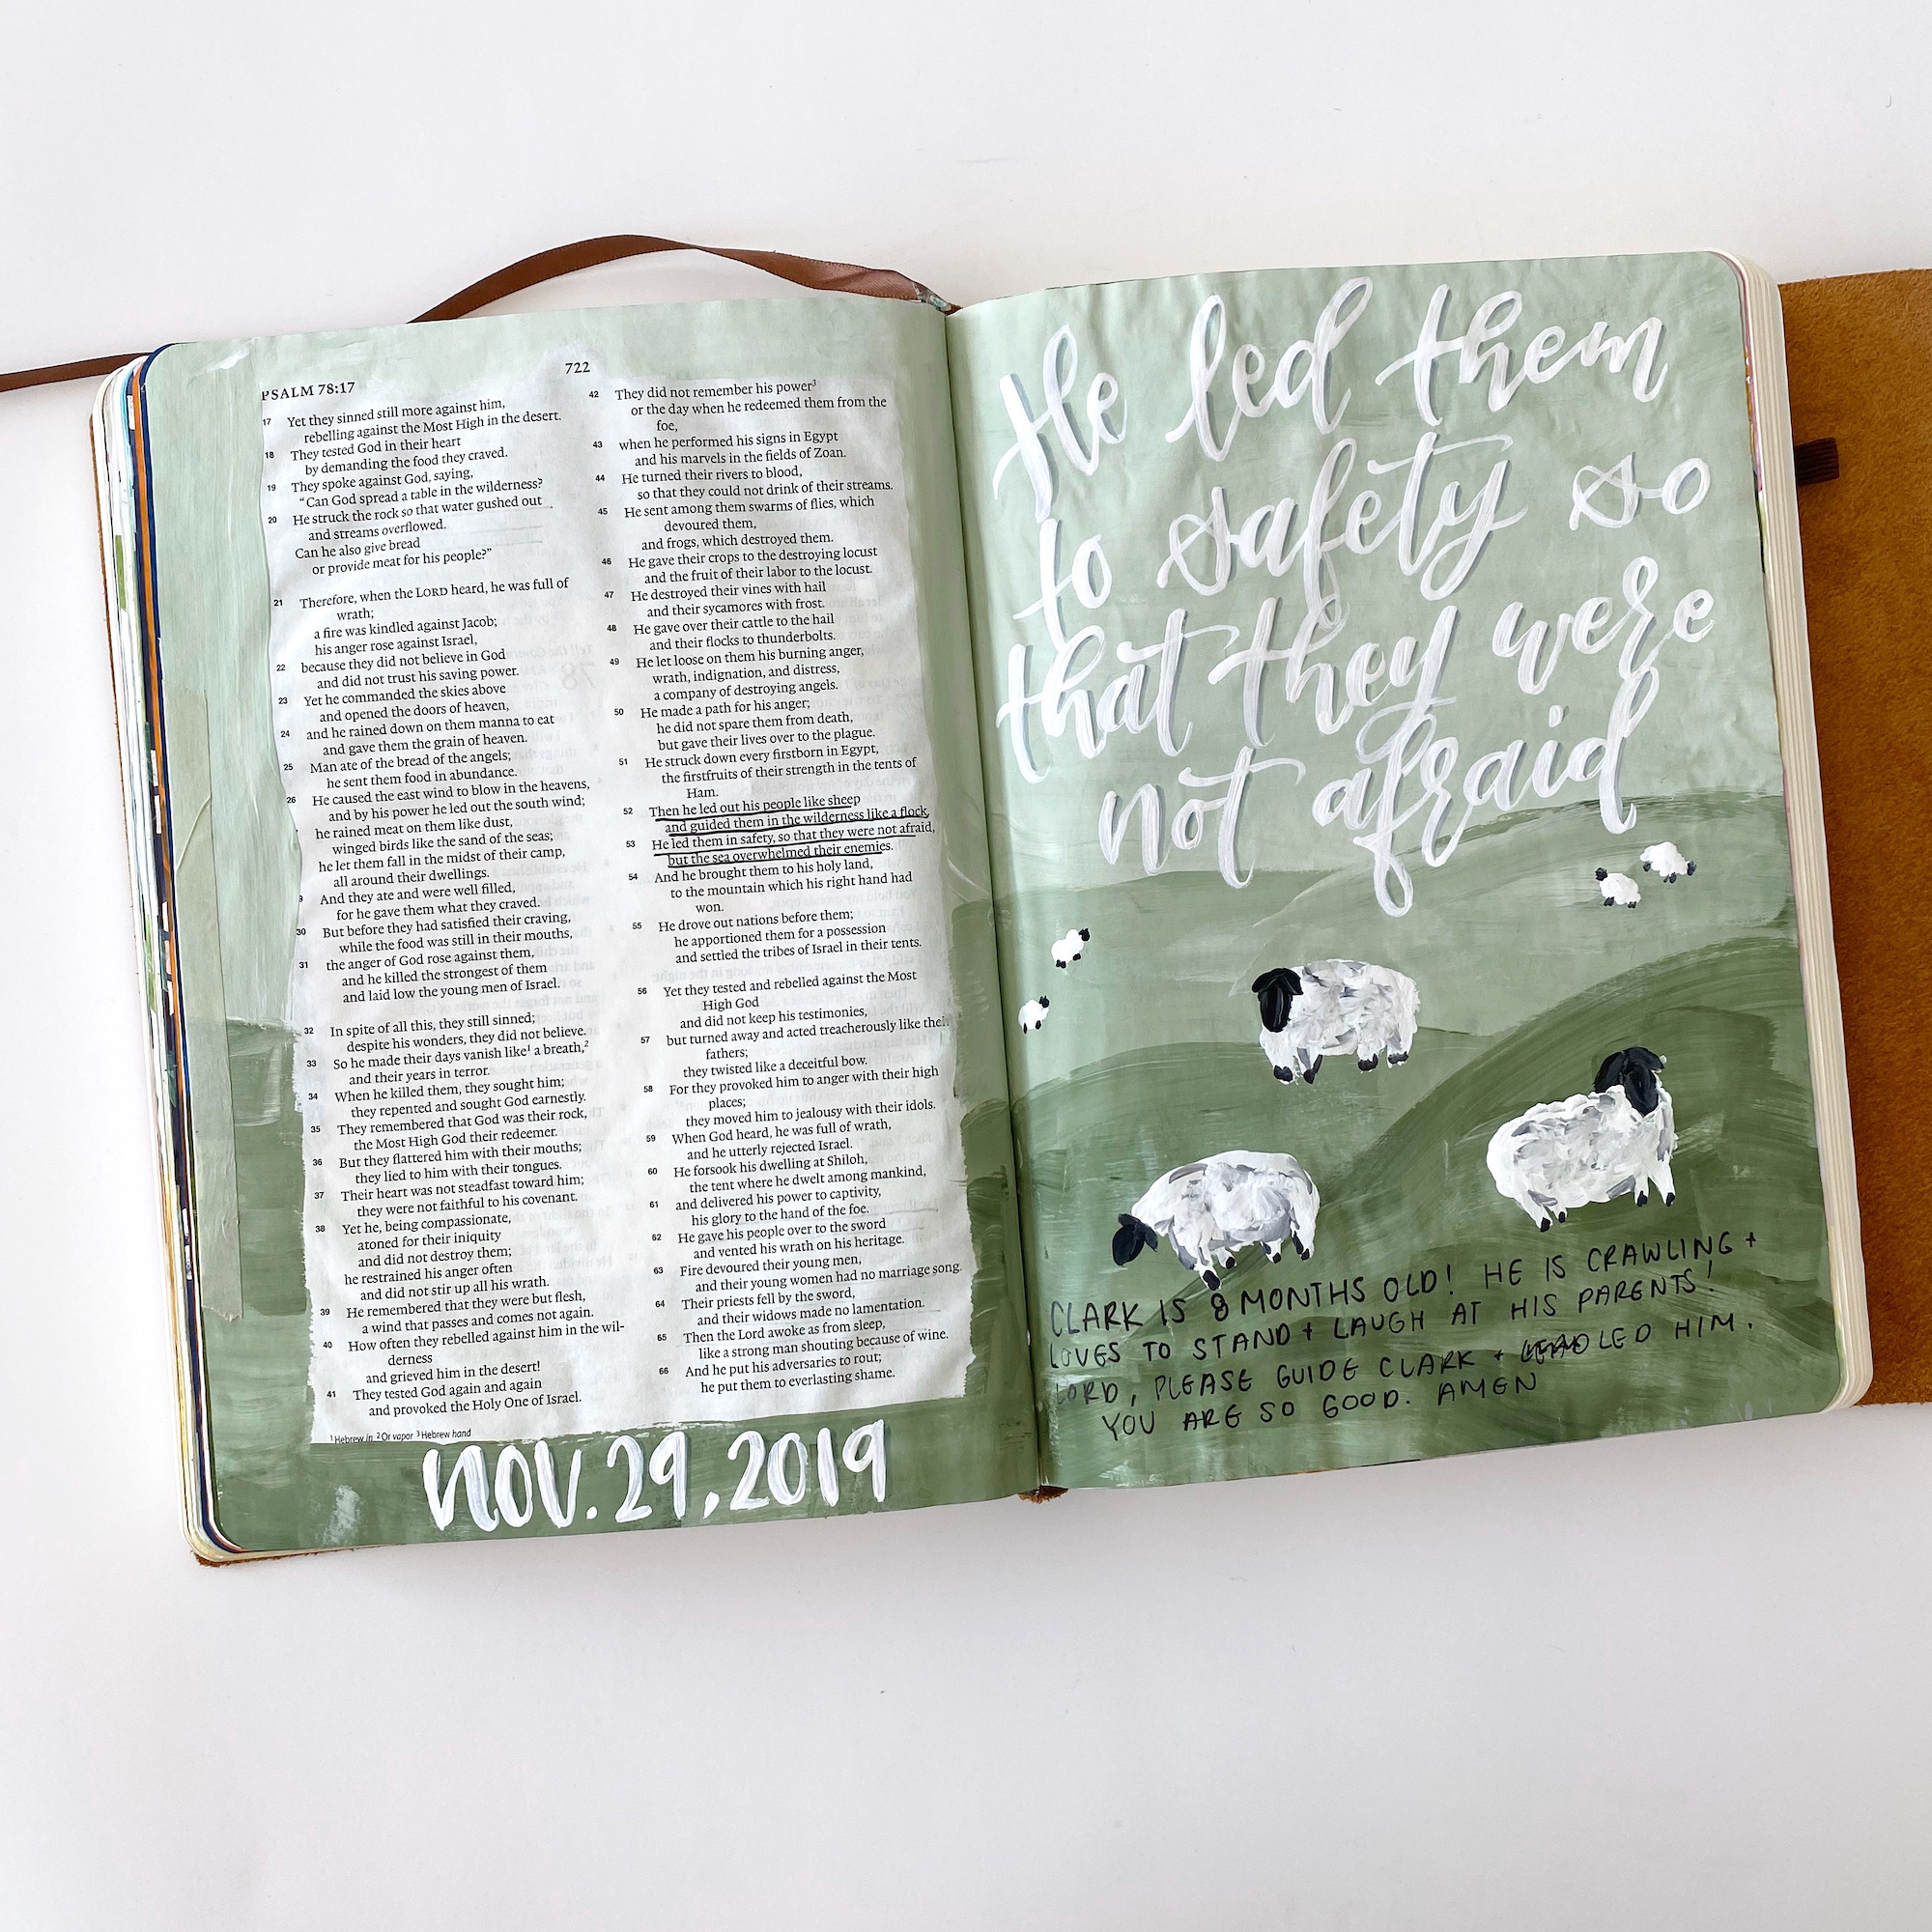 PSALM 78:17
722
17 Yet they sinned still more against him,
rebelling against the Most High in the desert.
18 They tested God in their heart
by demanding the food they craved.
19 They spoke against God, saying,
“Can God spread a table in the wilderness?
20 He struck the rock so that water gushed out
and streams overflowed.
Can he also give bread
or provide meat for his people?”
21 Therefore, when the LORD heard, he was full of
wrath;
a fire was kindled against Jacob;
his anger rose against Israel,
22 because they did not believe in God
and did not trust his saving power.
23 Yet he commanded the skies above
and opened the doors of heaven,
24 and he rained down on them manna to eat
and gave them the grain of heaven.
25 Man ate of the bread of the angels;
he sent them food in abundance.
26 He caused the east wind to blow in the heavens,
and by his power he led out the south wind;
he rained meat on them like dust,
winged birds like the sand of the seas;
he let them fall in the midst of their camp,
all around their dwellings.
9 And they ate and were well filled,
for he gave them what they craved.
30 But before they had satisfied their craving,
while the food was still in their mouths,
31 the anger of God rose against them,
and he killed the strongest of them
and laid low the young men of Israel.
32 In spite of all this, they still sinned;
despite his wonders, they did not believe.
33 So he made their days vanish like¹ a breath,²
and their years in terror.
34 When he killed them, they sought him;
they repented and sought God earnestly.
35 They remembered that God was their rock,
the Most High God their redeemer.
36 But they flattered him with their mouths;
they lied to him with their tongues.
37 Their heart was not steadfast toward him;
they were not faithful to his covenant.
38 Yet he, being compassionate,
atoned for their iniquity
and did not destroy them;
he restrained his anger often
and did not stir up all his wrath.
39 He remembered that they were but flesh,
a wind that passes and comes not again.
40 How often they rebelled against him in the wil-
derness
and grieved him in the desert!
41 They tested God again and again
and provoked the Holy One of Israel.
¹ Hebrew in ² Or vapor ³ Hebrew hand
42 They did not remember his power³
or the day when he redeemed them from the
foe,
43 when he performed his signs in Egypt
and his marvels in the fields of Zoan.
44 He turned their rivers to blood,
so that they could not drink of their streams.
45 He sent among them swarms of flies, which
devoured them,
and frogs, which destroyed them.
46 He gave their crops to the destroying locust
and the fruit of their labor to the locust.
47 He destroyed their vines with hail
and their sycamores with frost.
48 He gave over their cattle to the hail
and their flocks to thunderbolts.
49 He let loose on them his burning anger,
wrath, indignation, and distress,
a company of destroying angels.
50 He made a path for his anger;
he did not spare them from death,
but gave their lives over to the plague.
51 He struck down every firstborn in Egypt,
the firstfruits of their strength in the tents of
Ham.
52 Then he led out his people like sheep
and guided them in the wilderness like a flock.
53 He led them in safety, so that they were not afraid,
but the sea overwhelmed their enemies.
54 And he brought them to his holy land,
to the mountain which his right hand had
won.
55 He drove out nations before them;
he apportioned them for a possession
and settled the tribes of Israel in their tents.
56 Yet they tested and rebelled against the Most
High God
and did not keep his testimonies,
57 but turned away and acted treacherously like their
fathers;
they twisted like a deceitful bow.
58 For they provoked him to anger with their high
places;
they moved him to jealousy with their idols.
59 When God heard, he was full of wrath,
and he utterly rejected Israel.
60 He forsook his dwelling at Shiloh,
the tent where he dwelt among mankind,
61 and delivered his power to captivity,
his glory to the hand of the foe.
62 He gave his people over to the sword
and vented his wrath on his heritage.
63 Fire devoured their young men,
and their young women had no marriage song.
64 Their priests fell by the sword,
and their widows made no lamentation.
65 Then the Lord awoke as from sleep,
like a strong man shouting because of wine.
66 And he put his adversaries to rout;
he put them to everlasting shame.
NOV. 29, 2019
He led them
to safety so
that they were
not afraid
CLARK IS 8 MONTHS OLD! HE IS CRAWLING +
LOVES TO STAND + LAUGH AT HIS PARENTS!
LORD, PLEASE GUIDE CLARK + LED HIM.
YOU ARE SO GOOD. AMEN